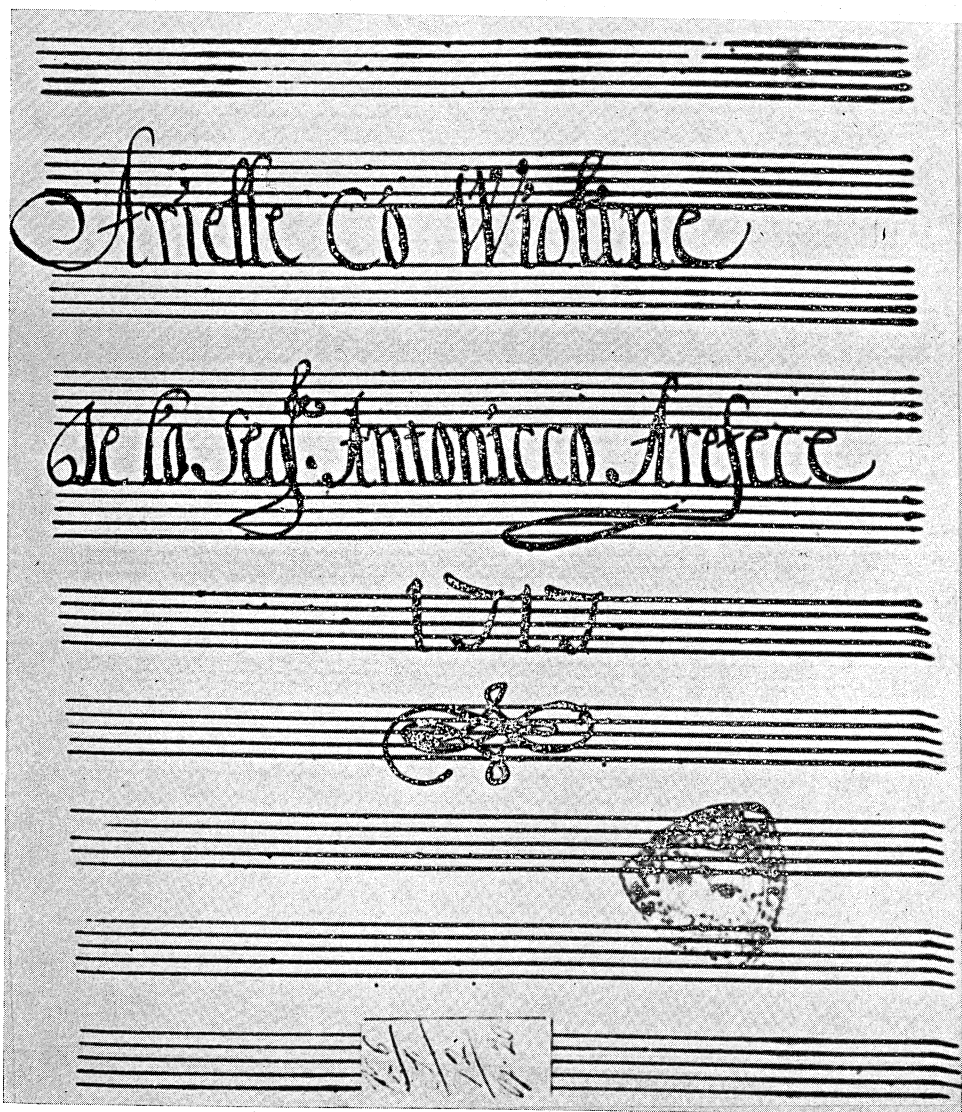 Arielle có Wioline
De ló Seg.re Antonicco Arefece
1717